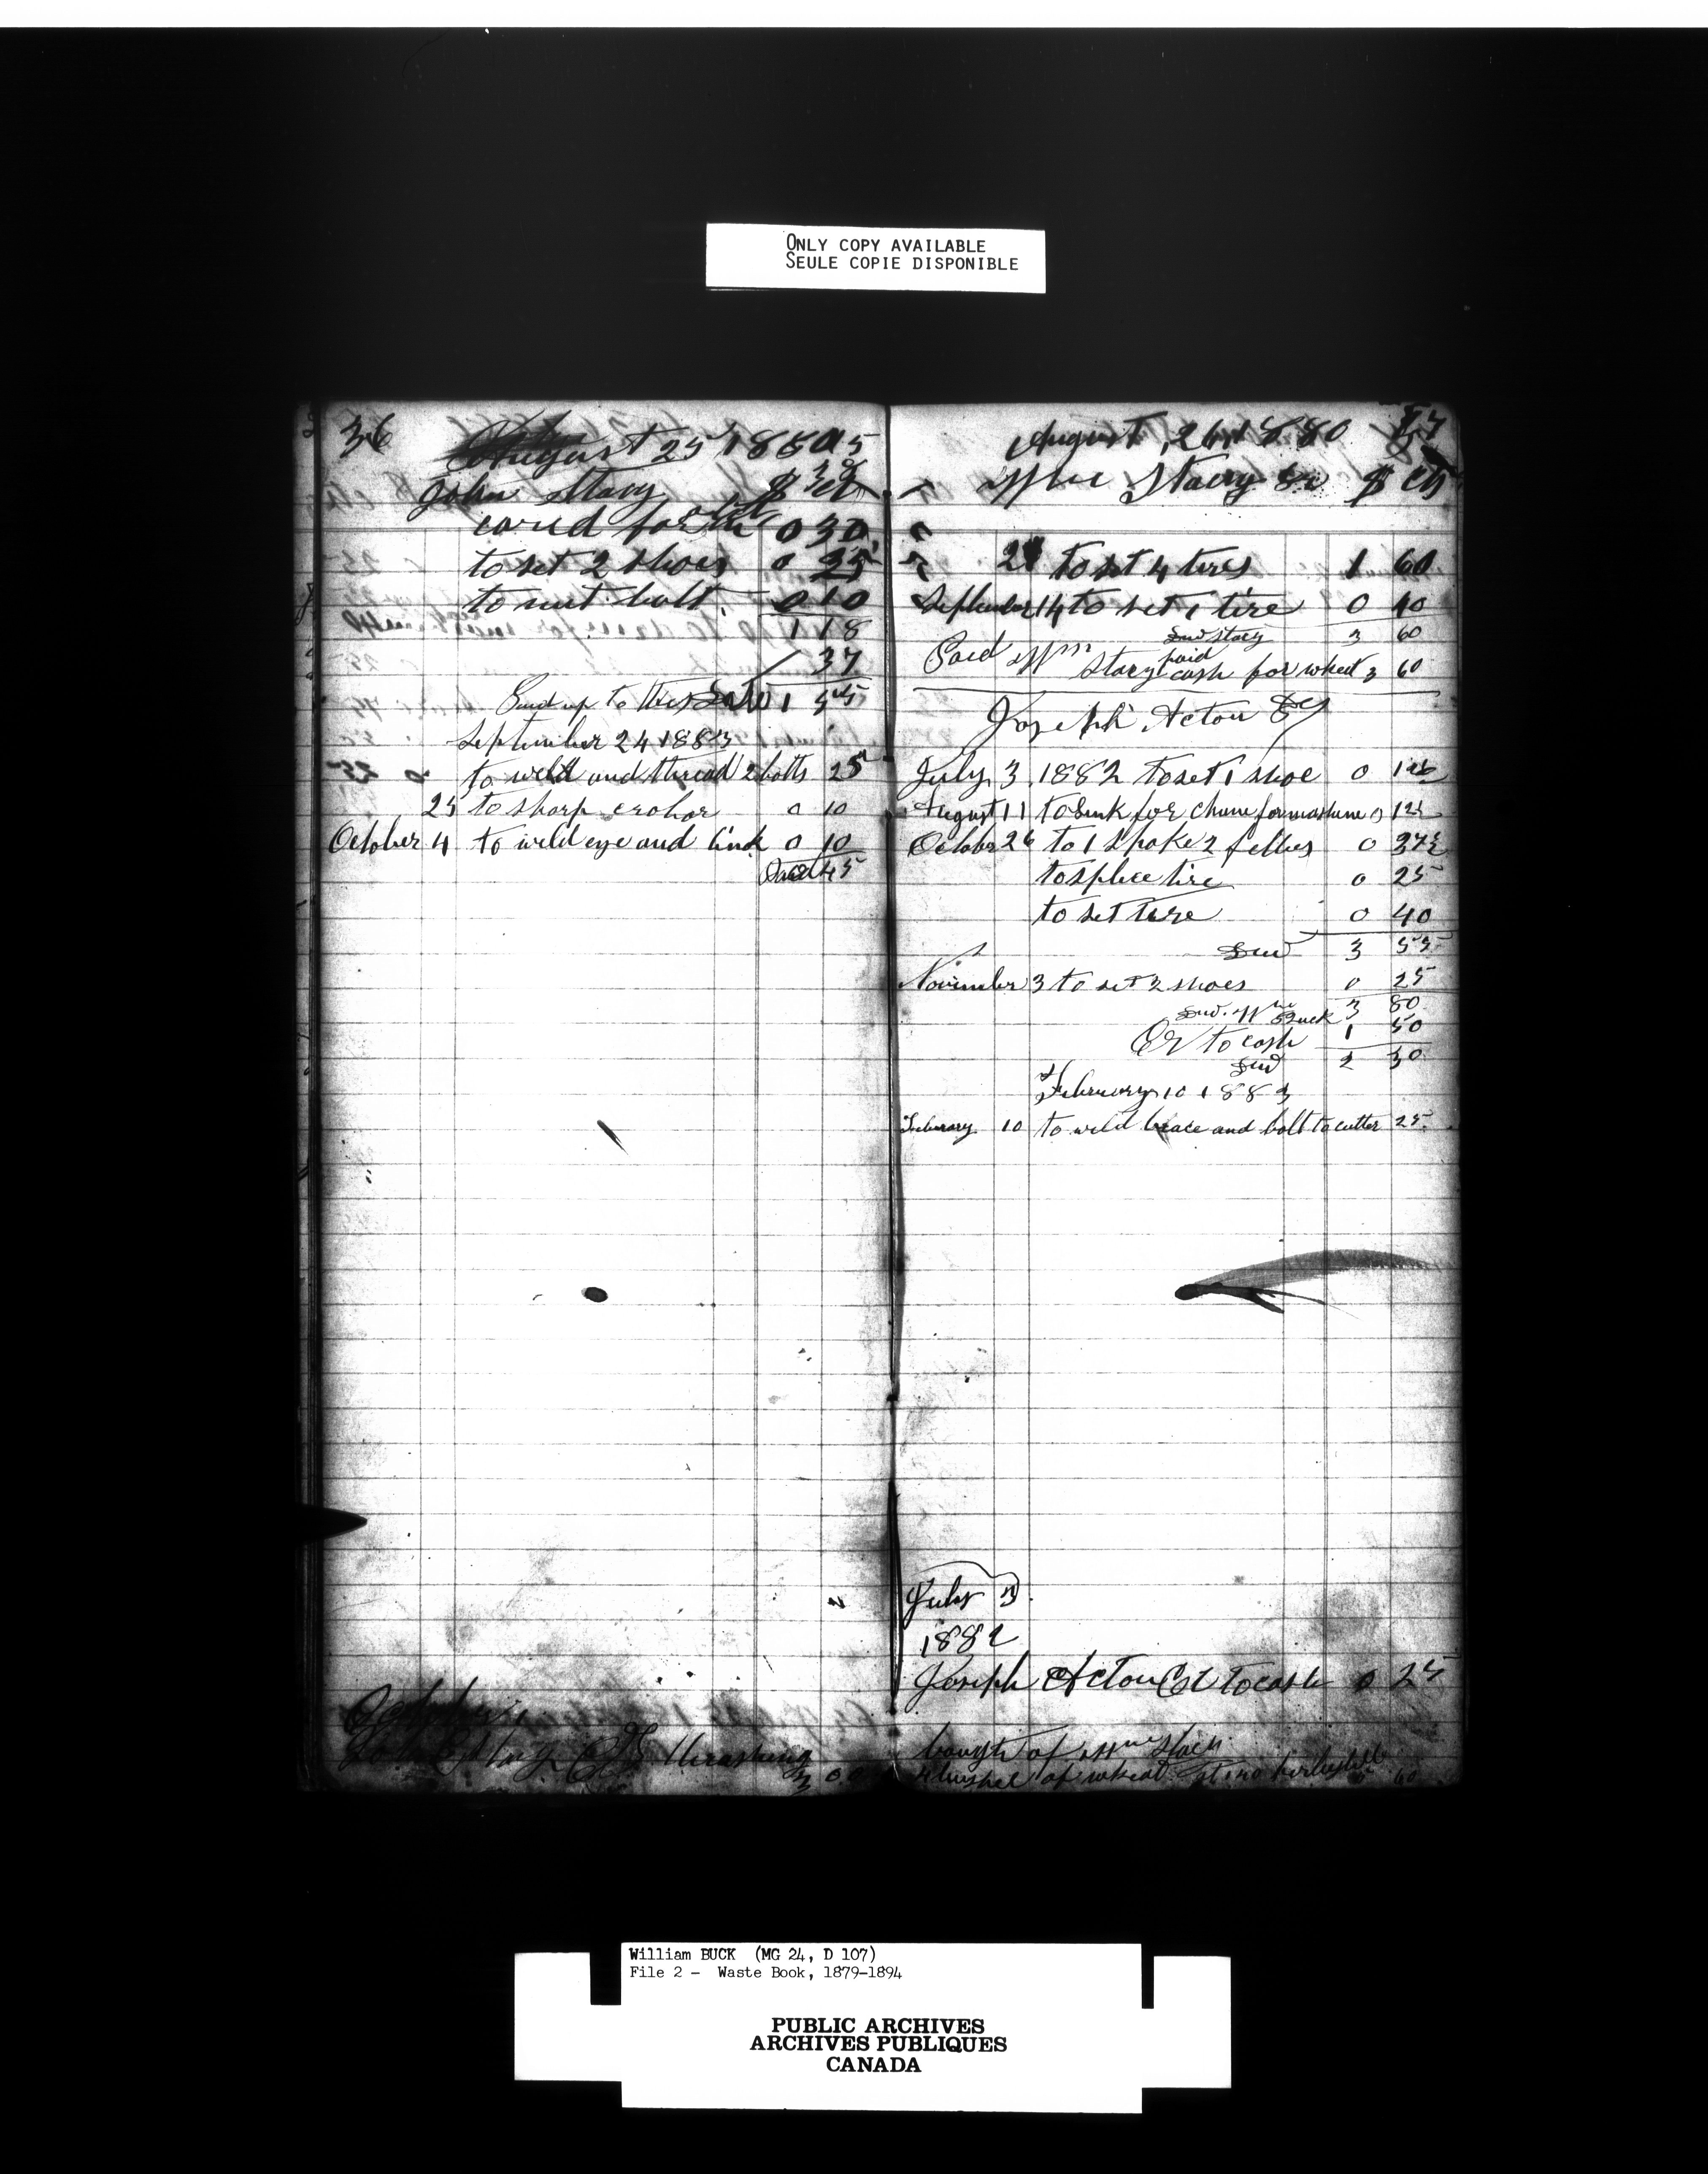 ONLY COPY AVAILABLE
SEULE COPIE DISPONIBLE
36
August 25 1880
John Stacy $
0 30
to set 2 shoes 0 25
to bolt 0 10
1 18
37
up to this 1
September 24 1883
to weld and thread 2 bolts 25
25 to sharp crobar 0 10
October 4 to weld eye and link 0 10
Paid 45
October
John Stacy thrashing
3 00
August 26 1880
Wm Stacy $ cts
to set 4 tires 1 60
September 14 to set 1 tire 0 40
Stacy 3 60
Paid Wm Stacy paid cash for wheat 3 60
Joseph Acton
July 3 1882 to set 1 shoe 0 12½
August 11 to for 0 12½
October 26 to 1 spoke 2 fellies 0 37½
to splice tire 0 25
to set tire 0 40
Due 3 55
November 3 to set 2 shoes 0 25
Due Wm Buck 3 80
Cr to cash 1 50
Due 2 30
February 10 1883
February 10 to weld brace and bolt to cutter 25
July 3
1882
Joseph Acton to cash 0 25
bought of Wm Stacy
4 bushel of wheat
William BUCK (MG 24, D 107)
File 2 - Waste Book, 1879-1894
PUBLIC ARCHIVES
ARCHIVES PUBLIQUES
CANADA